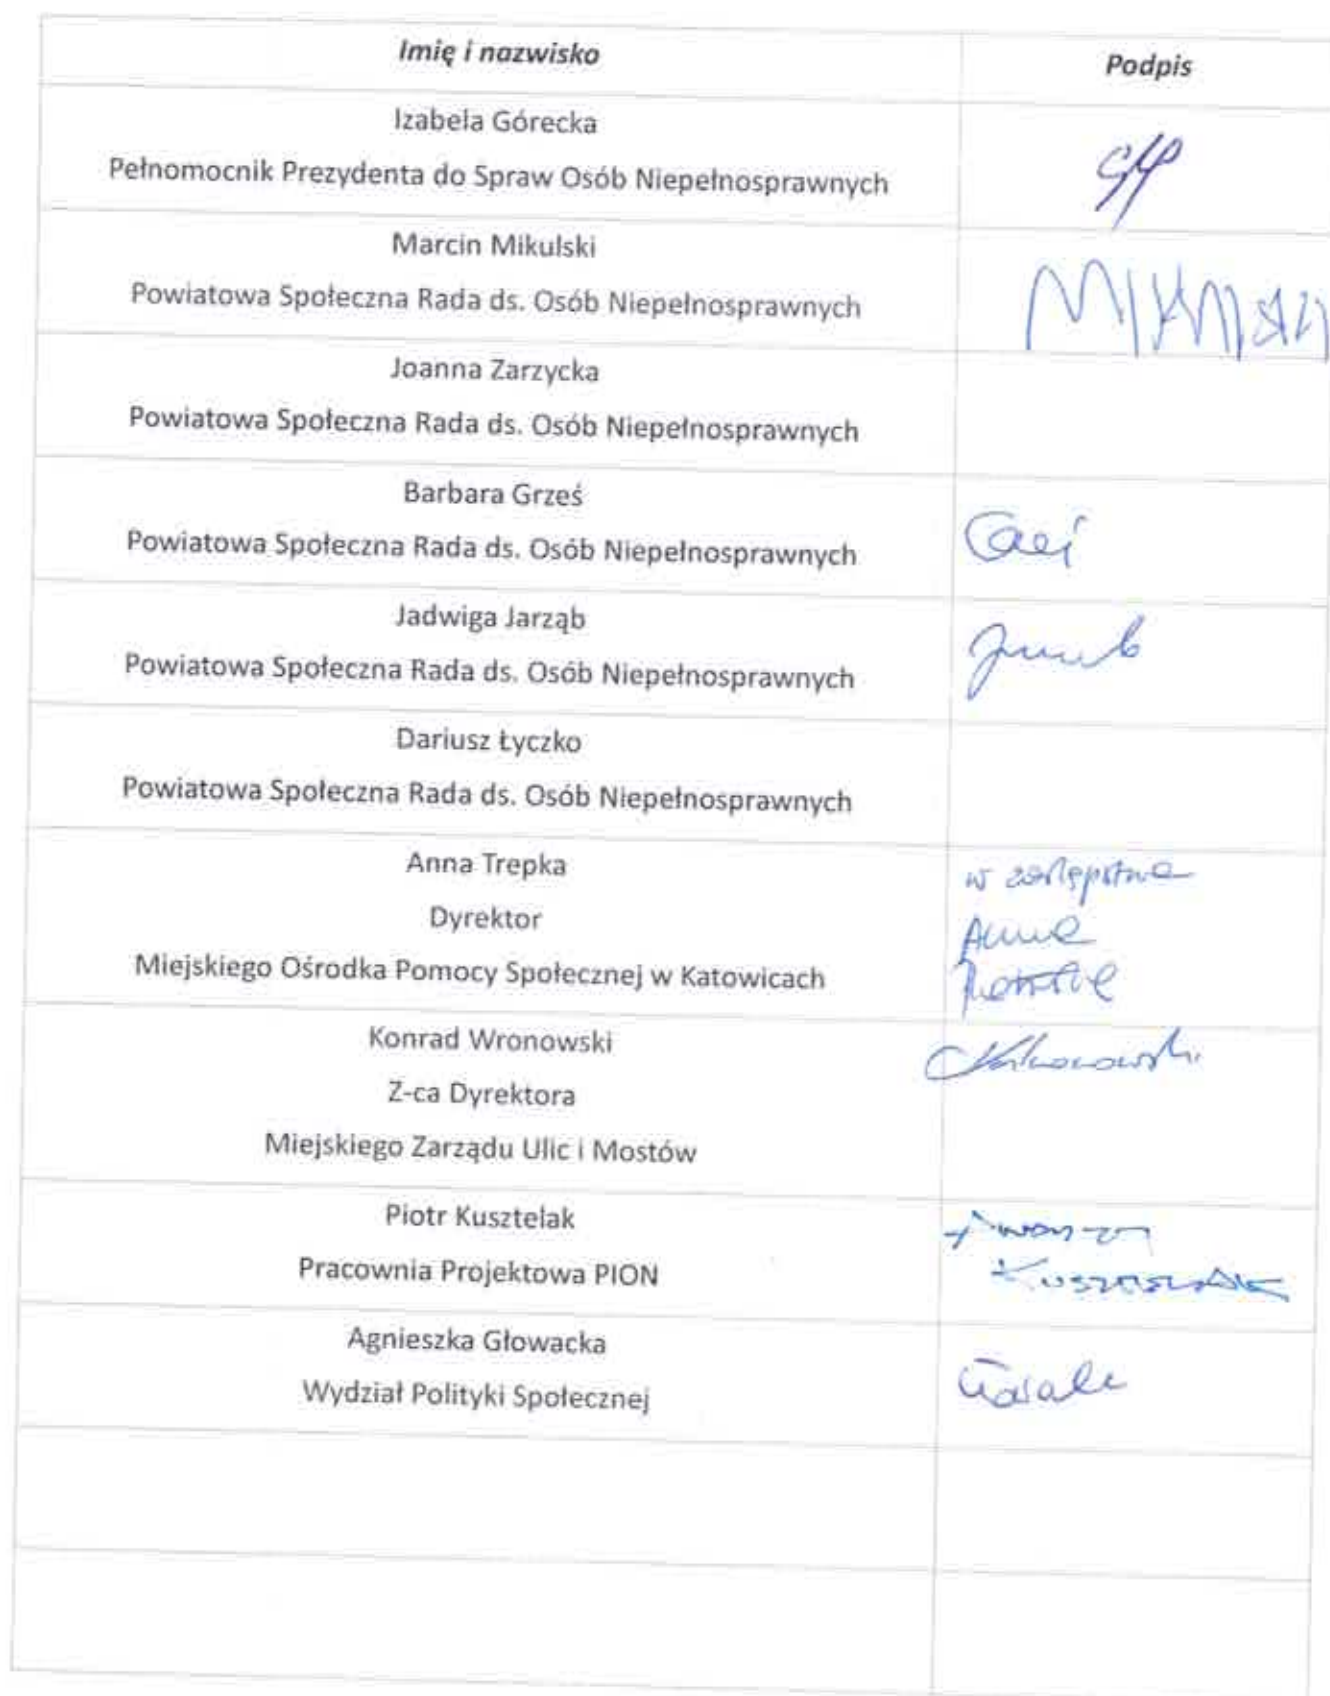 Imię i nazwisko
Podpis
Izabela Górecka
Pełnomocnik Prezydenta do Spraw Osób Niepełnosprawnych
Marcin Mikulski
Powiatowa Społeczna Rada ds. Osób Niepełnosprawnych
Joanna Zarzycka
Powiatowa Społeczna Rada ds. Osób Niepełnosprawnych
Barbara Grześ
Powiatowa Społeczna Rada ds. Osób Niepełnosprawnych
Jadwiga Jarząb
Powiatowa Społeczna Rada ds. Osób Niepełnosprawnych
Dariusz Łyczko
Powiatowa Społeczna Rada ds. Osób Niepełnosprawnych
Anna Trepka
Dyrektor
Miejskiego Ośrodka Pomocy Społecznej w Katowicach
w zastępstwie
Anna
Konrad Wronowski
Z-ca Dyrektora
Miejskiego Zarządu Ulic i Mostów
Piotr Kusztelak
Pracownia Projektowa PION
Kusztelak
Agnieszka Głowacka
Wydział Polityki Społecznej